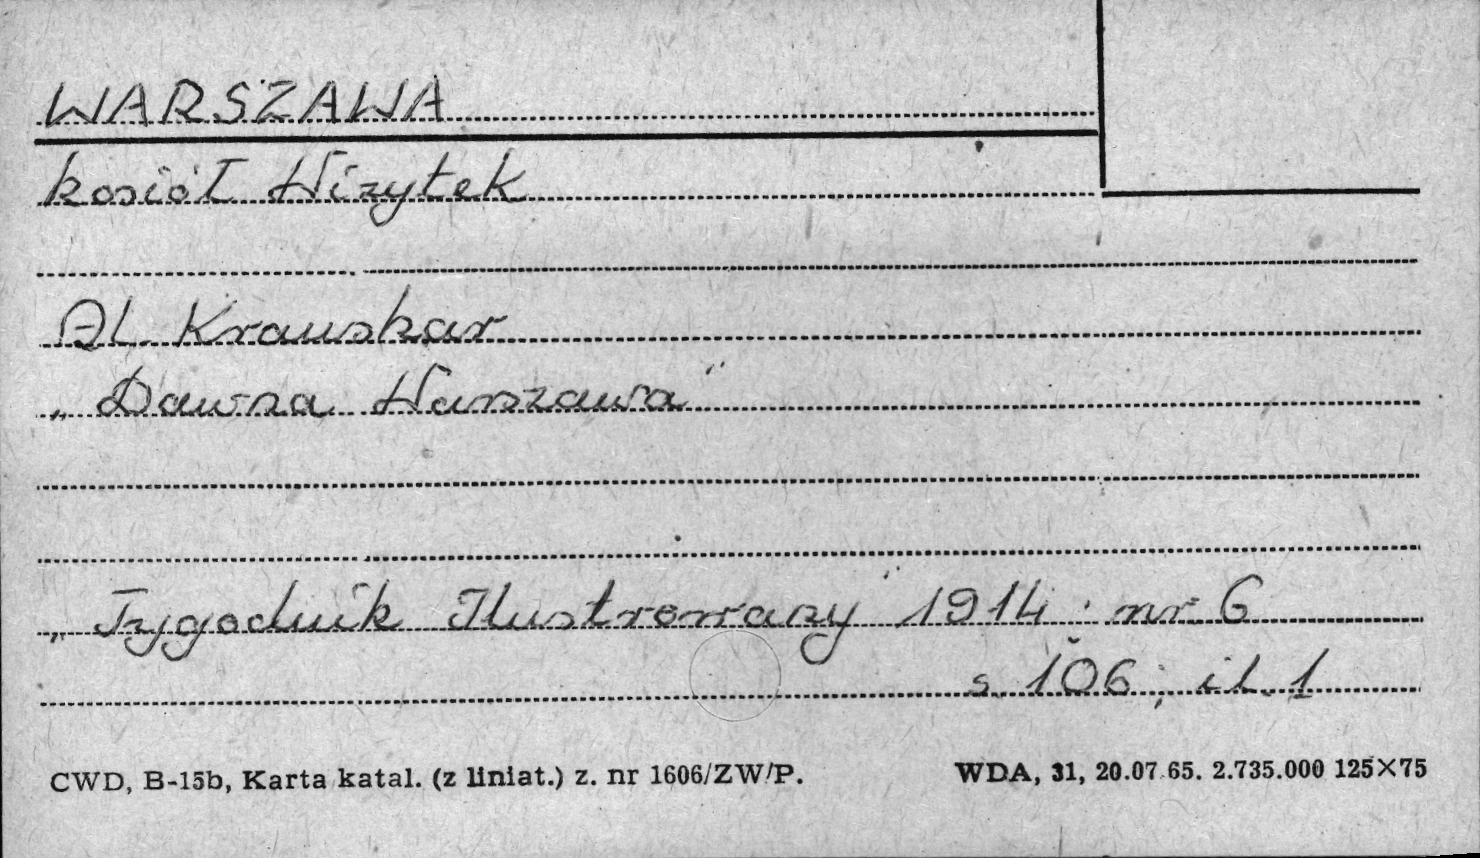 WARSZAWA
kosiół Wizytek
Al. Krauskar
„Dawna Warszawa"
„Tygodnik Ilustrowany 1914 nr 6
s. 106; il. 1
CWD, B-15b, Karta katal. (z liniat.) z. nr 1606/ZW/P.
WDA, 31, 20.07.65. 2.735.000 125×75